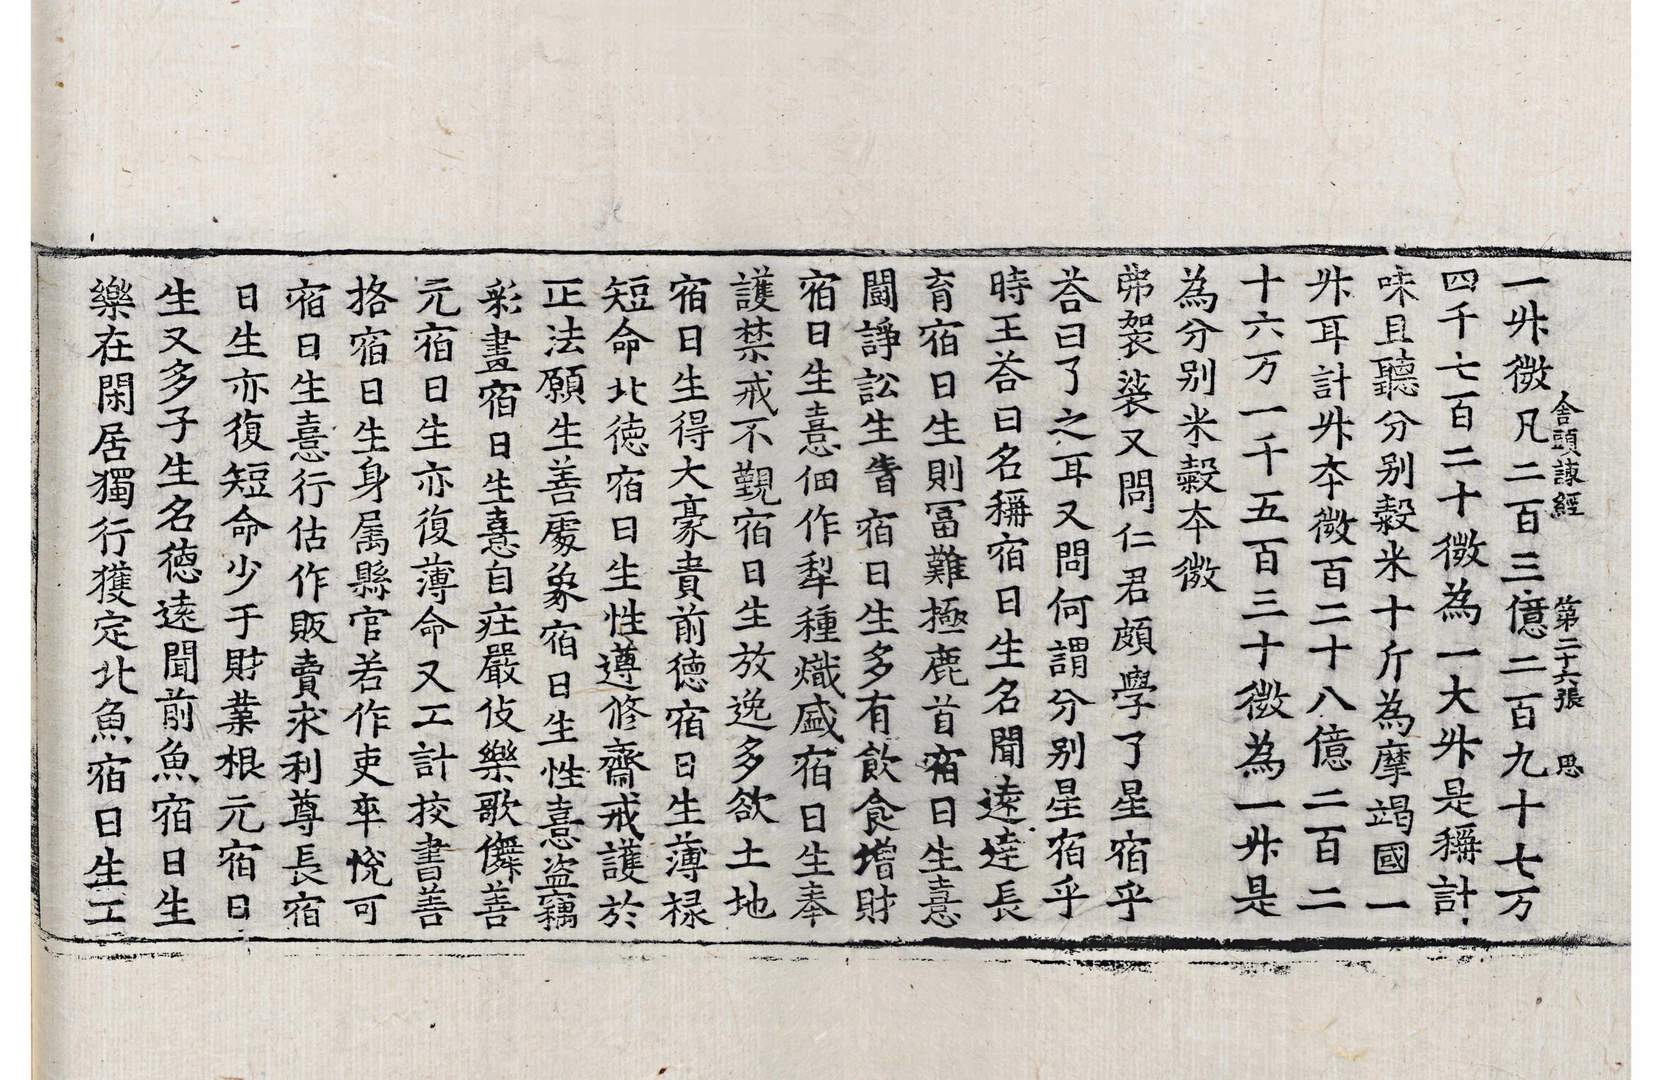 舎頭諫經　第二十六張　思
一升微凡二百三億二百九十七万
四千七百二十微為一大升是稱計
味且聽分别穀米十斤為摩竭國一
升耳計升夲微百二十八億二百二
十六万一千五百三十微為一升是
為分别米穀夲微
弗袈裟又問仁君頗學了星宿乎
荅曰了之耳又問何謂分别星宿乎
時王荅曰名稱宿日生名聞遠逹長
育宿日生則冨難極鹿首宿日生憙
鬪諍訟生眚宿日生多有飲食増財
宿日生憙佃作犁種熾盛宿日生奉
護禁戒不觀宿日生放逸多欲土地
宿日生得大豪貴前徳宿日生薄禄
短命北徳宿日生性遵修齋戒護於
正法願生善處象宿日生性憙盗竊
彩畫宿日生憙自庄嚴伎樂歌儛善
元宿日生亦復薄命又工計挍書善
挌宿日生身属縣官若作吏卒恱可
宿日生憙行估作販賣求利尊長宿
日生亦復短命少于財業根元宿日
生又多子生名徳逺聞前魚宿日生
樂在閑居獨行獲定北魚宿日生工